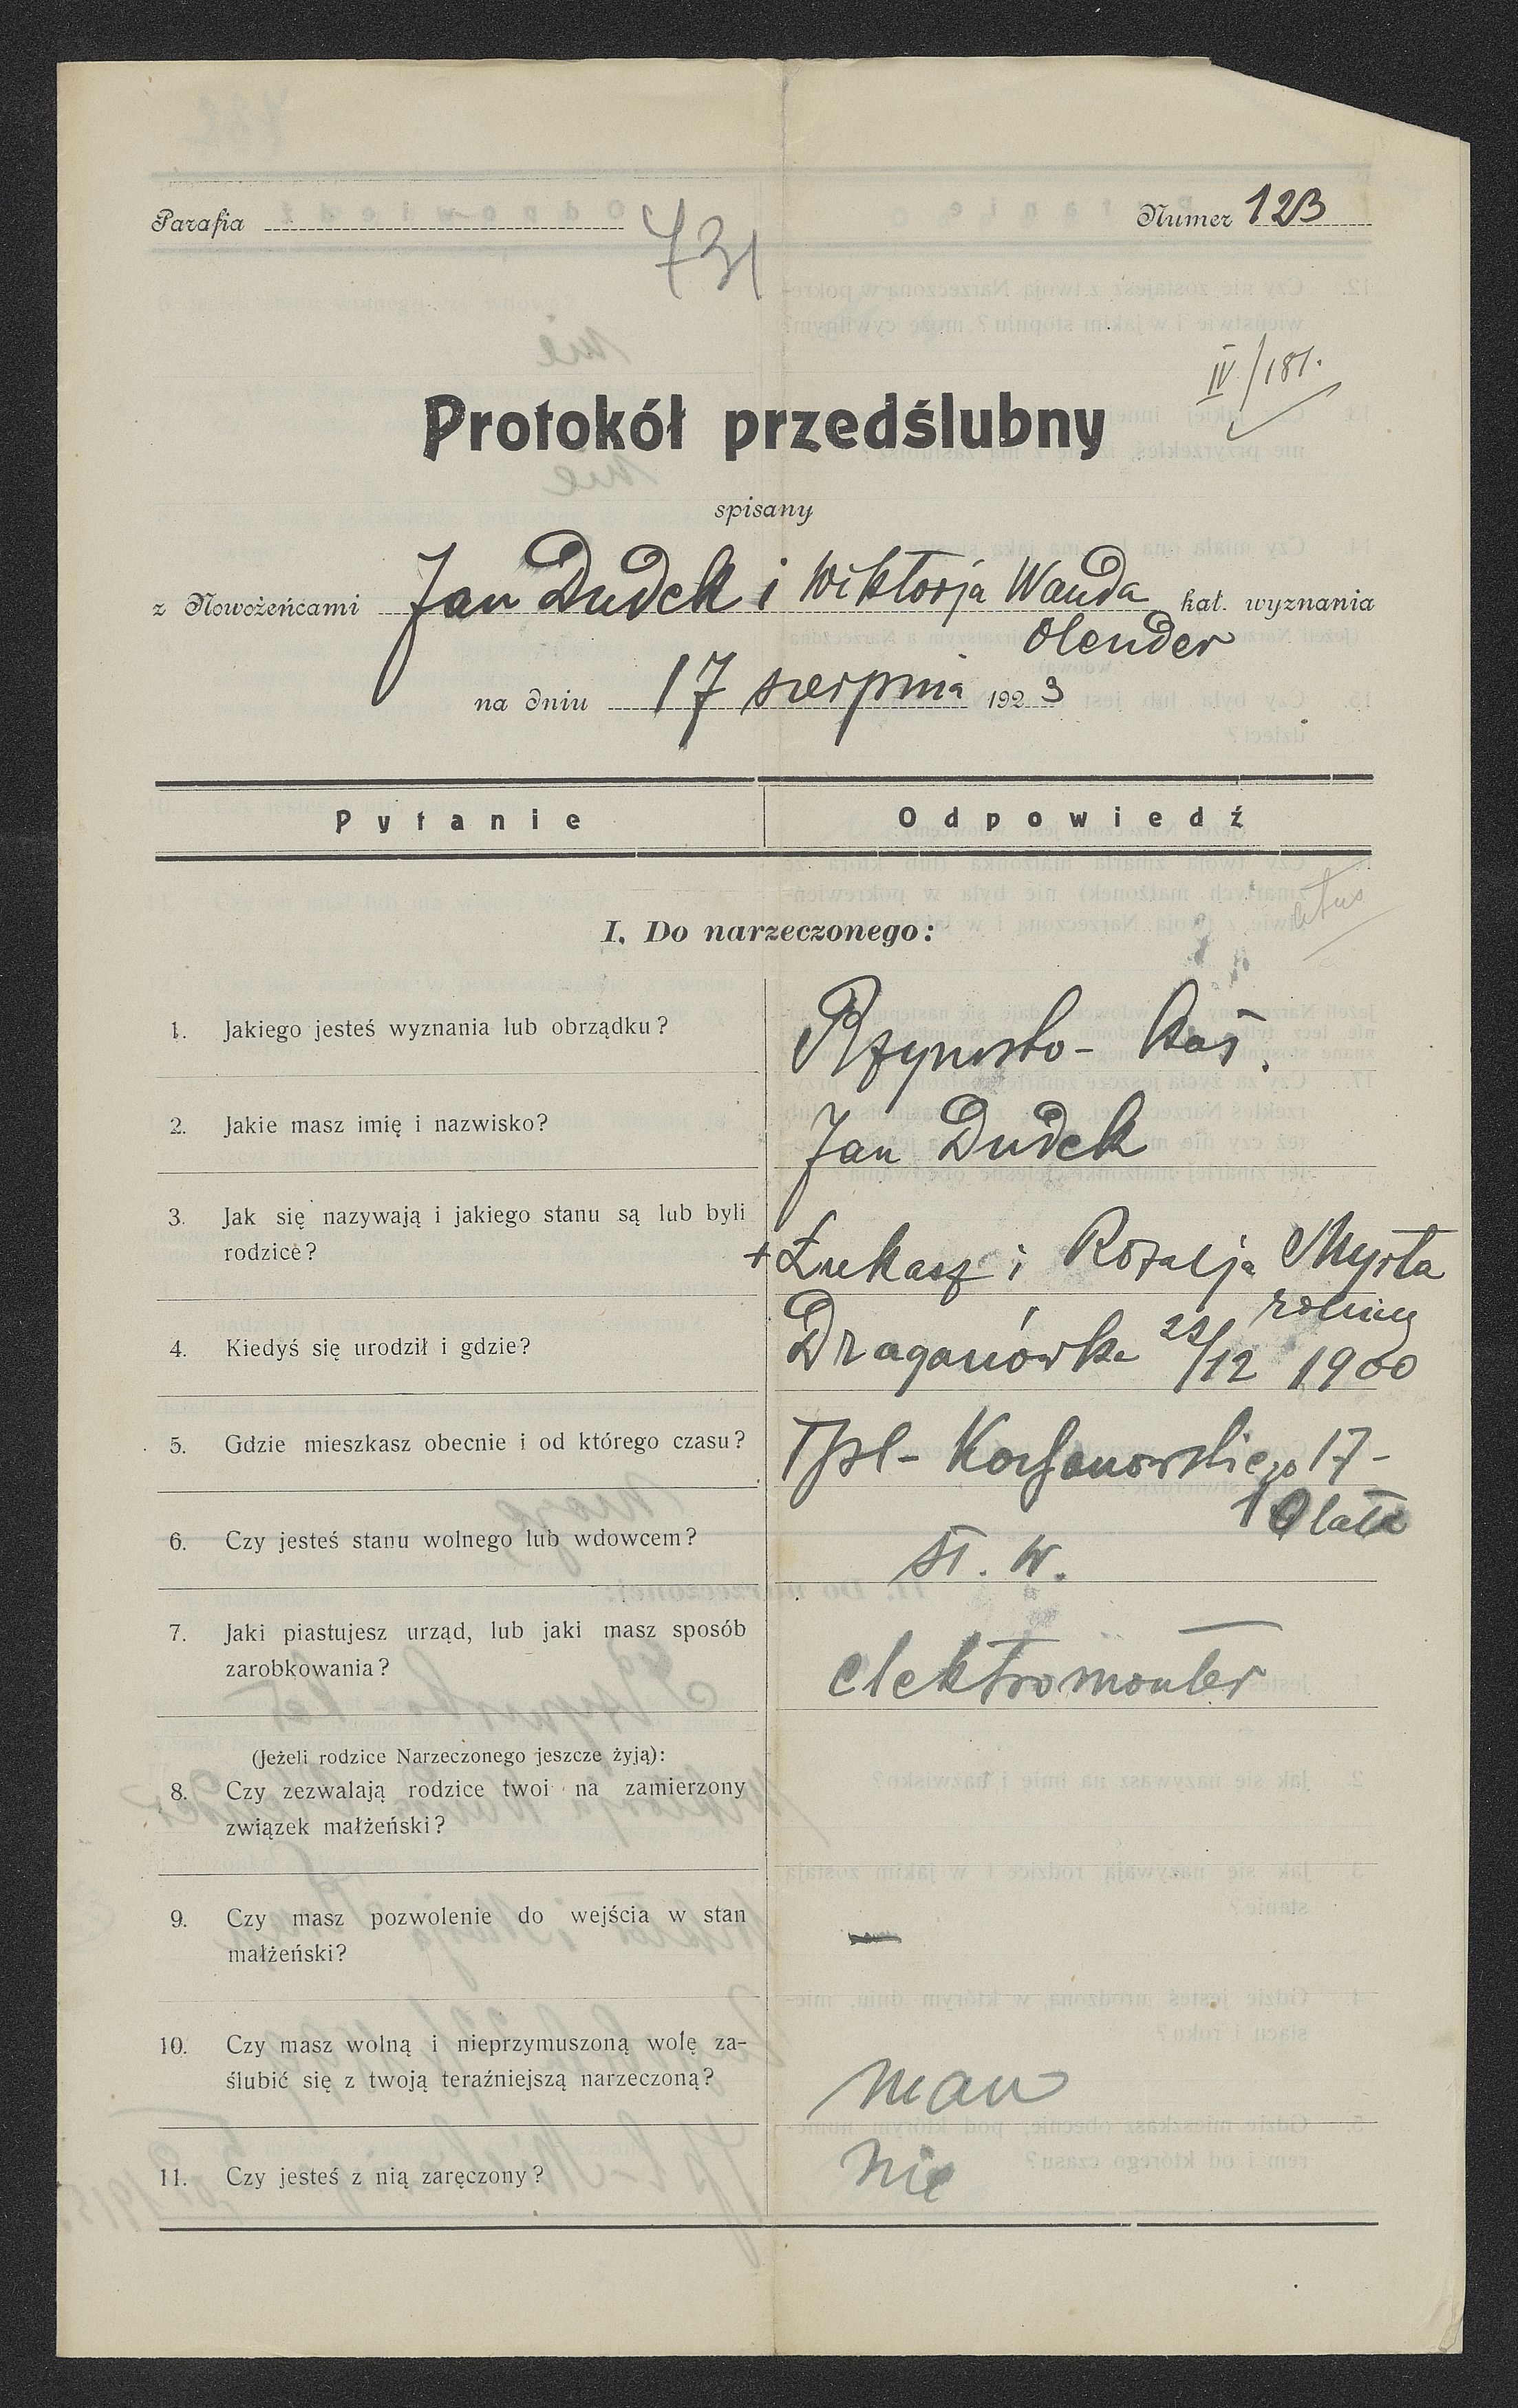 Parafia
731
Numer 123
IV/181.
Protokół przedślubny
spisany
z Nowożeńcami Jan Dudek i Wiktorja Wanda kat. wyznania
Olender
na dniu 17 sierpnia 1923
Pytanie Odpowiedź
I. Do narzeczonego:
1. Jakiego jesteś wyznania lub obrządku? Rzymsko-kat.
2. Jakie masz imię i nazwisko? Jan Dudek
3. Jak się nazywają i jakiego stanu są lub byli
rodzice? +Łukasz i Rozalja
4. Kiedyś się urodził i gdzie? Draganówka /12 1900
5. Gdzie mieszkasz obecnie i od którego czasu? Tpl- Kochanowskiego 17-
10 lata
6. Czy jesteś stanu wolnego lub wdowcem? st. w.
7. Jaki piastujesz urząd, lub jaki masz sposób
zarobkowania? elektromonter
(Jeżeli rodzice Narzeczonego jeszcze żyją):
8. Czy zezwalają rodzice twoi na zamierzony
związek małżeński?
9. Czy masz pozwolenie do wejścia w stan
małżeński? —
10. Czy masz wolną i nieprzymuszoną wolę za-
ślubić się z twoją teraźniejszą narzeczoną? mam
11. Czy jesteś z nią zaręczony? nie